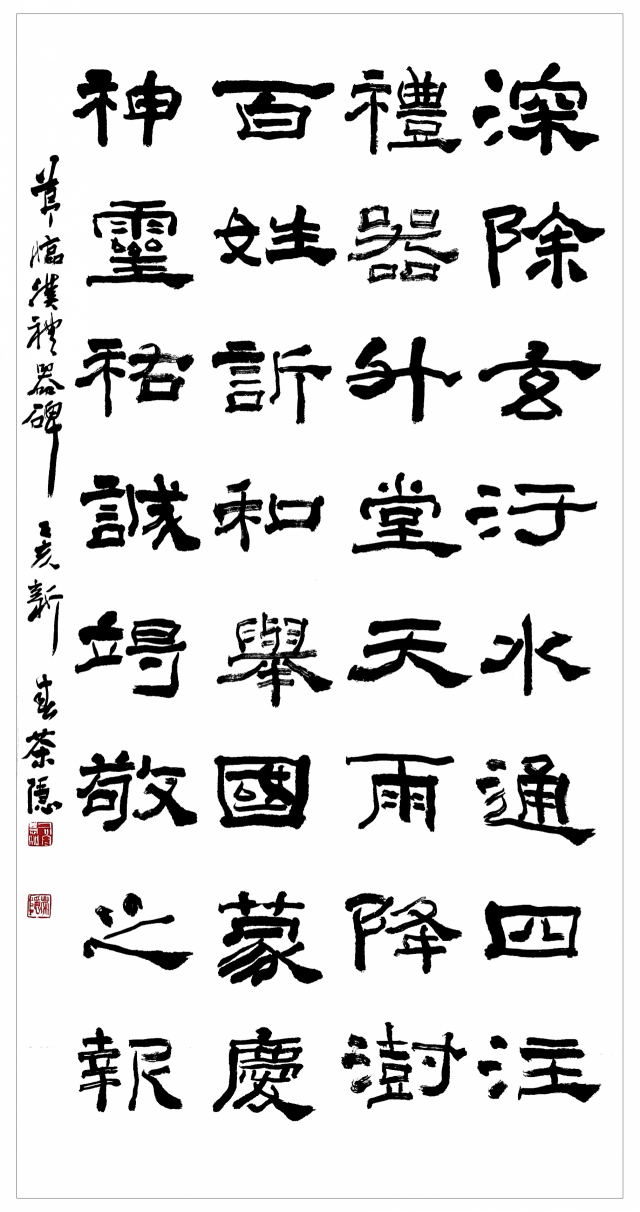 深除玄汙水通四注
禮器外堂天雨降澍
百姓訢和舉國蒙慶
神靈祐誠竭敬之報
節臨漢禮器碑 己亥新春茶隱